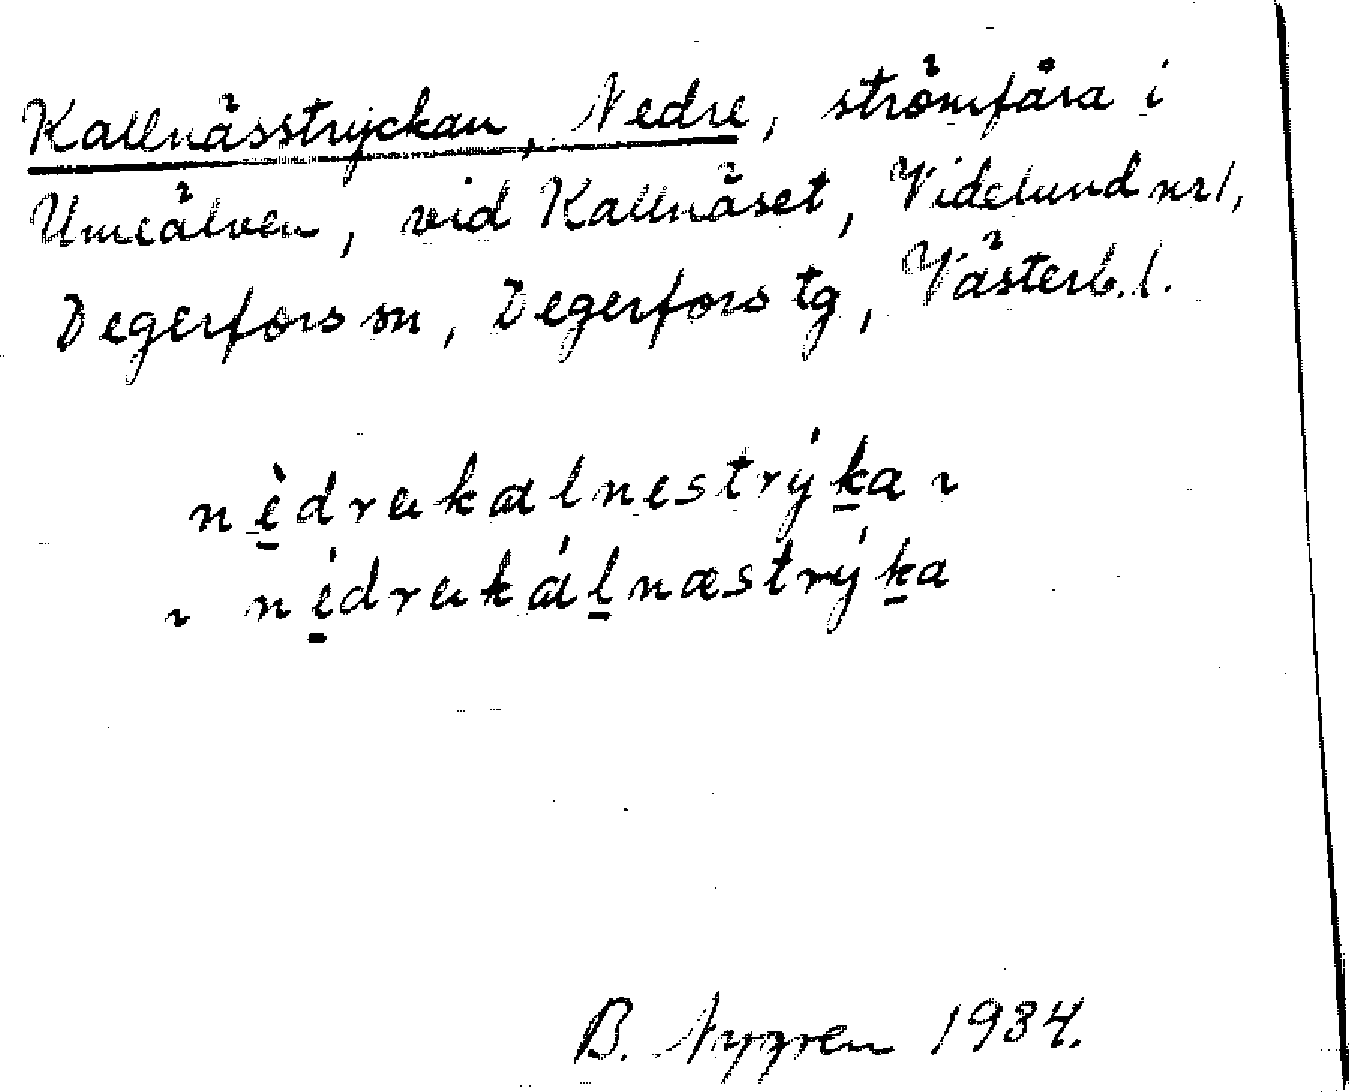 Kallnässtryckan, Nedre, strömfåra i
Umeälven, vid Kallnäset, Videlund nr 1,
Degerfors sn, Degerfors tg, Västerb. l.
nèdrekalnestrýka ~
~ nédrekálnæstrýka
B. Nygren 1934.